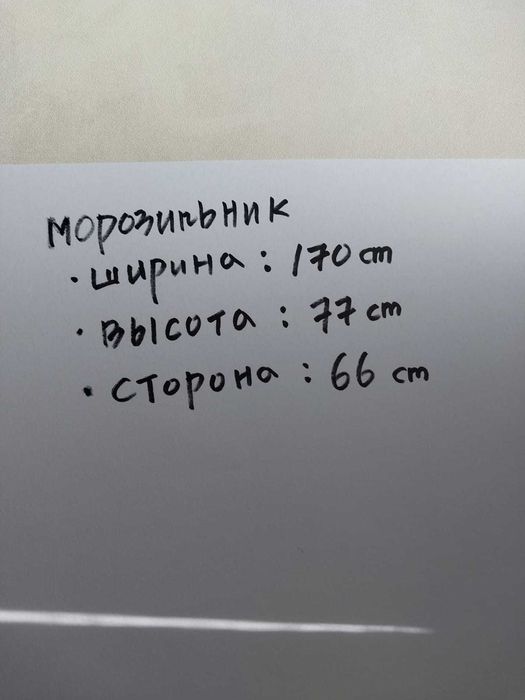 Морозильник
• ширина : 170 cm
• высота : 77 cm
• сторона : 66 cm